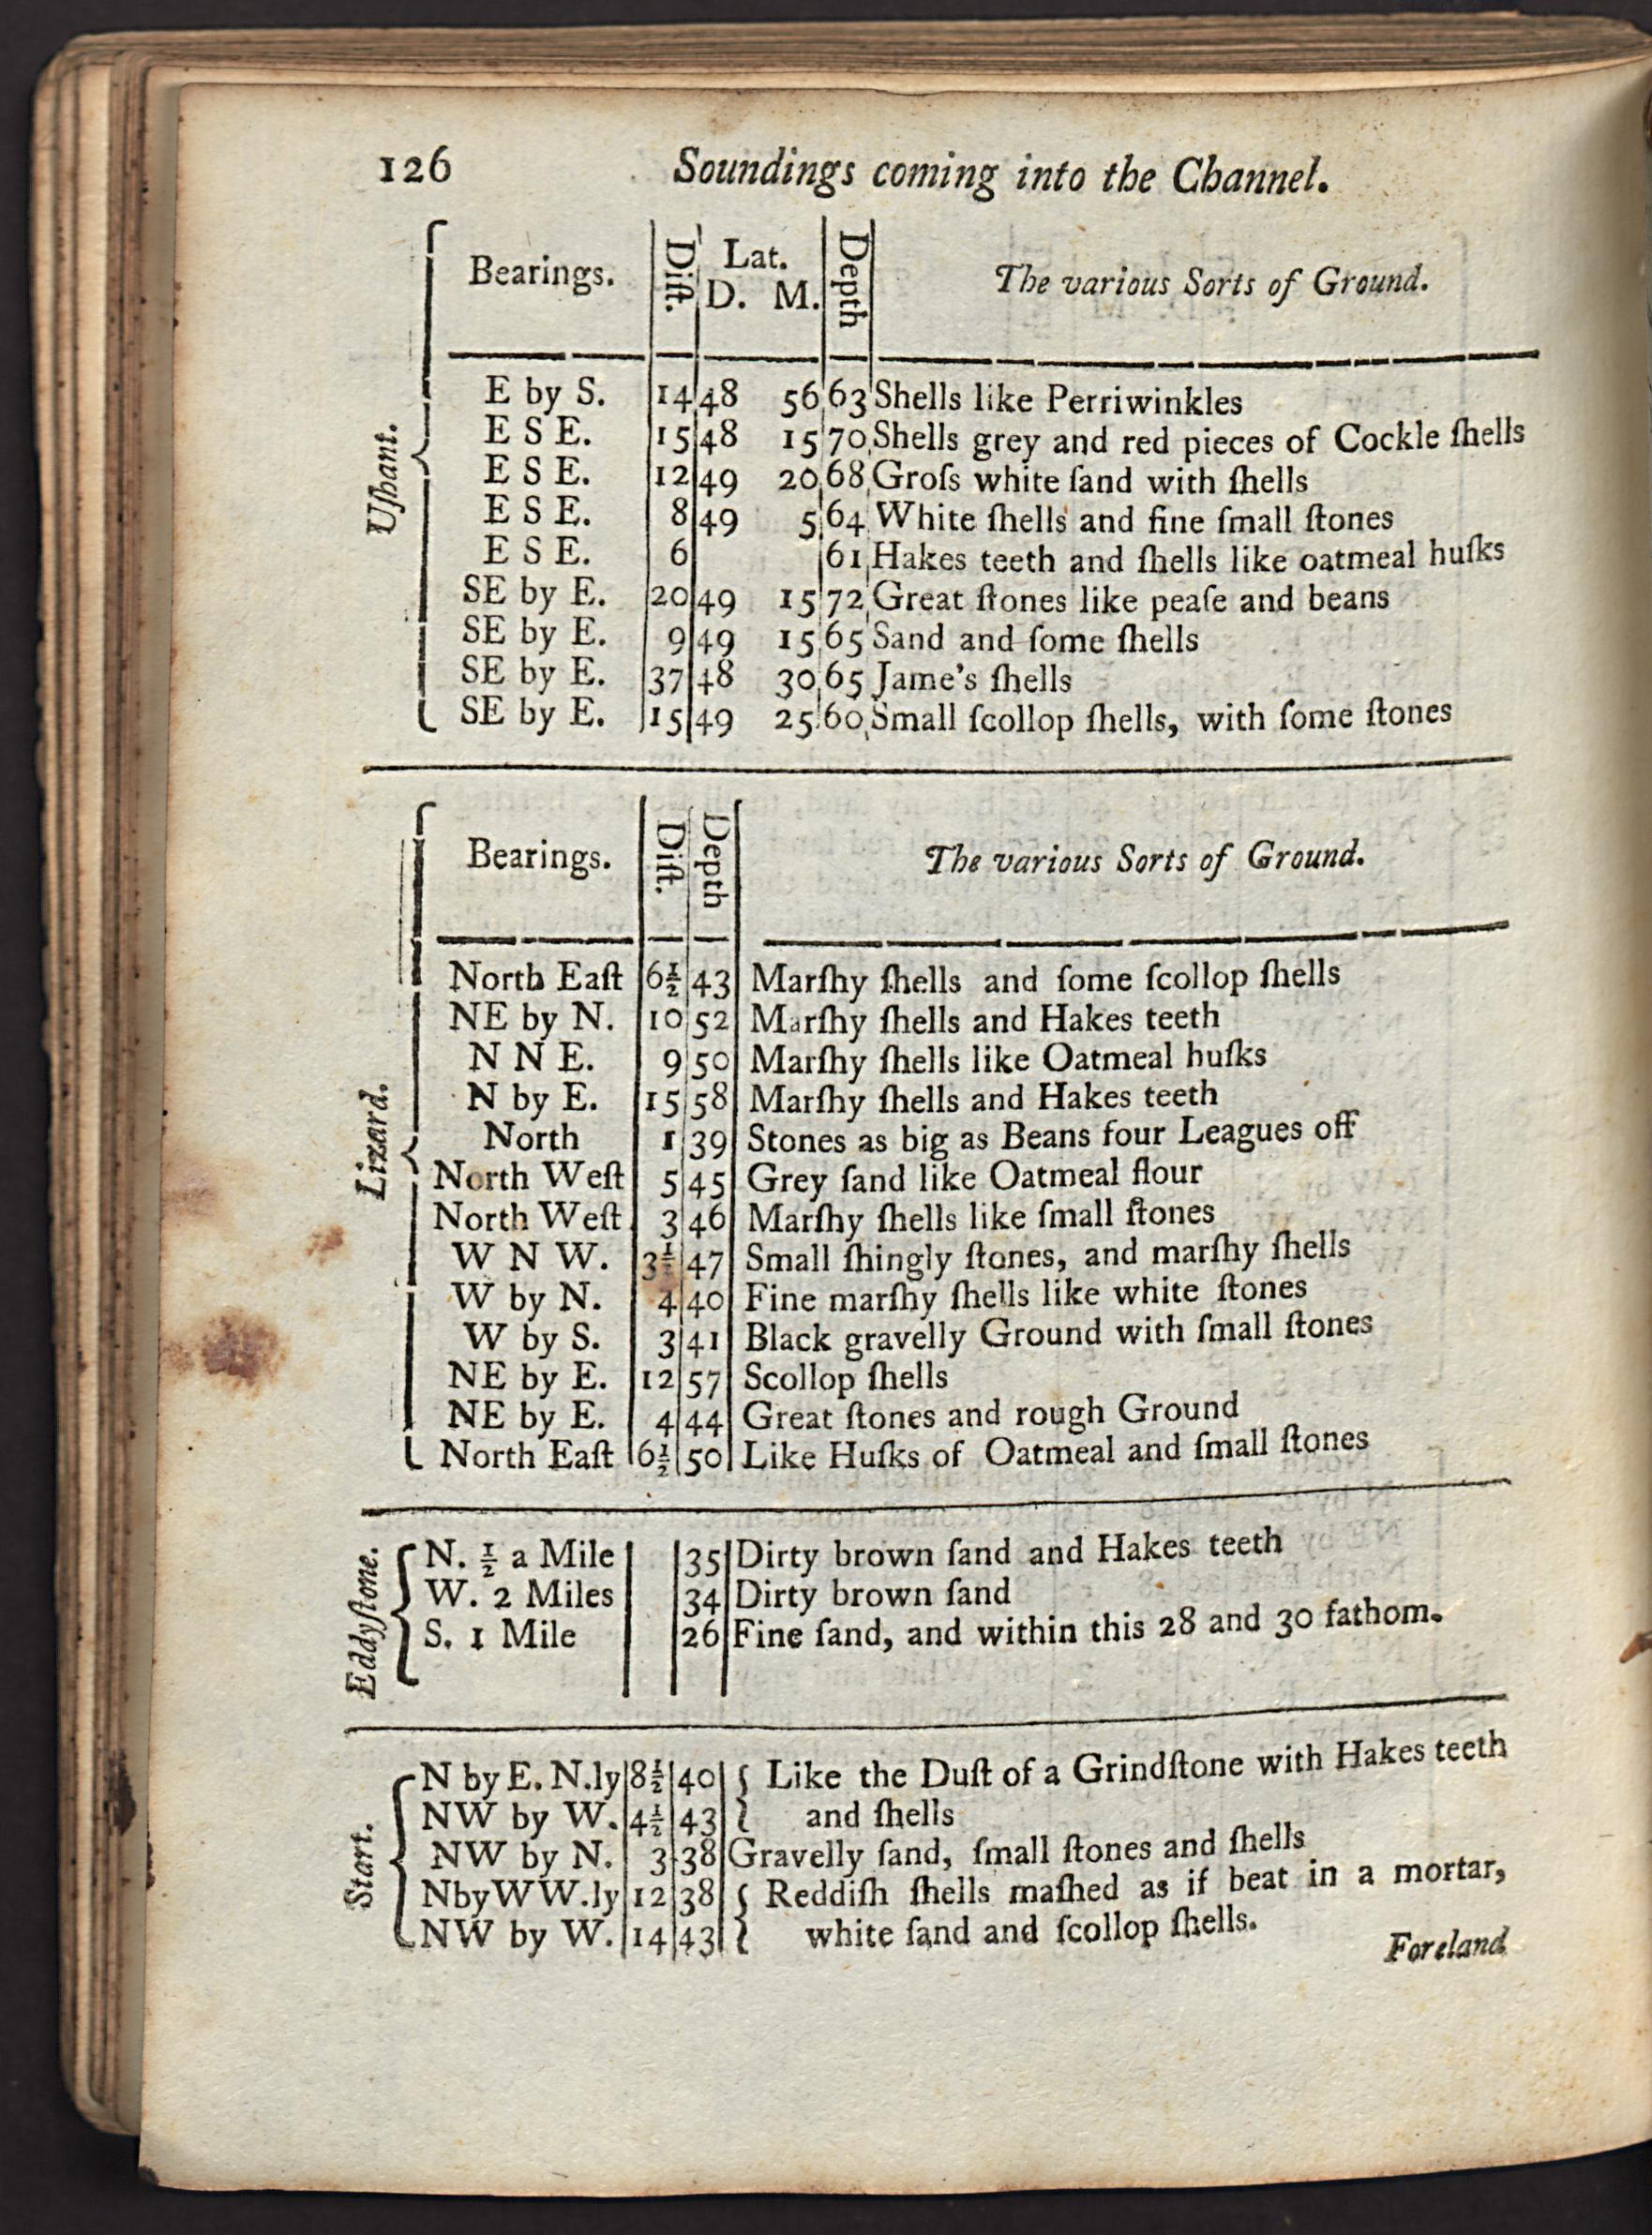 126 Soundings coming into the Channel.
Uſhant.
Bearings. Diſt. Lat. D. M. Depth The various Sorts of Ground.
E by S. 14 48 56 63 Shells like Perriwinkles
E S E. 15 48 15 70 Shells grey and red pieces of Cockle ſhells
E S E. 12 49 20 68 Groſs white ſand with ſhells
E S E. 8 49 5 64 White ſhells and fine ſmall ſtones
E S E. 6 61 Hakes teeth and ſhells like oatmeal huſks
SE by E. 20 49 15 72 Great ſtones like peaſe and beans
SE by E. 9 49 15 65 Sand and ſome ſhells
SE by E. 37 48 30 65 Jame's ſhells
SE by E. 15 49 25 60 Small ſcollop ſhells, with ſome ſtones
Lizard.
Bearings. Diſt. Depth The various Sorts of Ground.
North Eaſt 6½ 43 Marſhy ſhells and ſome ſcollop ſhells
NE by N. 10 52 Marſhy ſhells and Hakes teeth
N N E. 9 50 Marſhy ſhells like Oatmeal huſks
N by E. 15 58 Marſhy ſhells and Hakes teeth
North 1 39 Stones as big as Beans four Leagues off
North Weſt 5 45 Grey ſand like Oatmeal flour
North Weſt 3 46 Marſhy ſhells like ſmall ſtones
W N W. 3½ 47 Small ſhingly ſtones, and marſhy ſhells
W by N. 4 40 Fine marſhy ſhells like white ſtones
W by S. 3 41 Black gravelly Ground with ſmall ſtones
NE by E. 12 57 Scollop ſhells
NE by E. 4 44 Great ſtones and rough Ground
North Eaſt 6½ 50 Like Huſks of Oatmeal and ſmall ſtones
Eddyſtone.
N. ½ a Mile 35 Dirty brown ſand and Hakes teeth
W. 2 Miles 34 Dirty brown ſand
S. 1 Mile 26 Fine ſand, and within this 28 and 30 fathom.
Start.
N by E. N.ly 8½ 40 Like the Duſt of a Grindſtone with Hakes teeth
NW by W. 4½ 43 and ſhells
NW by N. 3 38 Gravelly ſand, ſmall ſtones and ſhells
NbyWW.ly 12 38 Reddiſh ſhells maſhed as if beat in a mortar,
NW by W. 14 43 white ſand and ſcollop ſhells.
Foreland